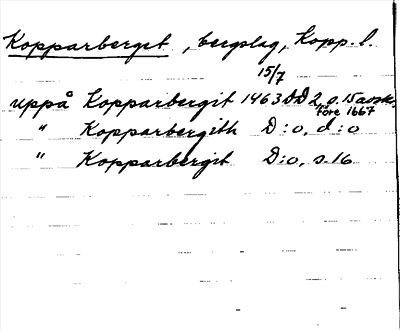 Kopparberget, bergslag, Kopp. l.
15/7
uppå Kopparbergit 1463 DD 2, s. 15 avskr.
före 1667
" Kopparbergith D:o, d:o
" Kopparbergit D:o, s. 16